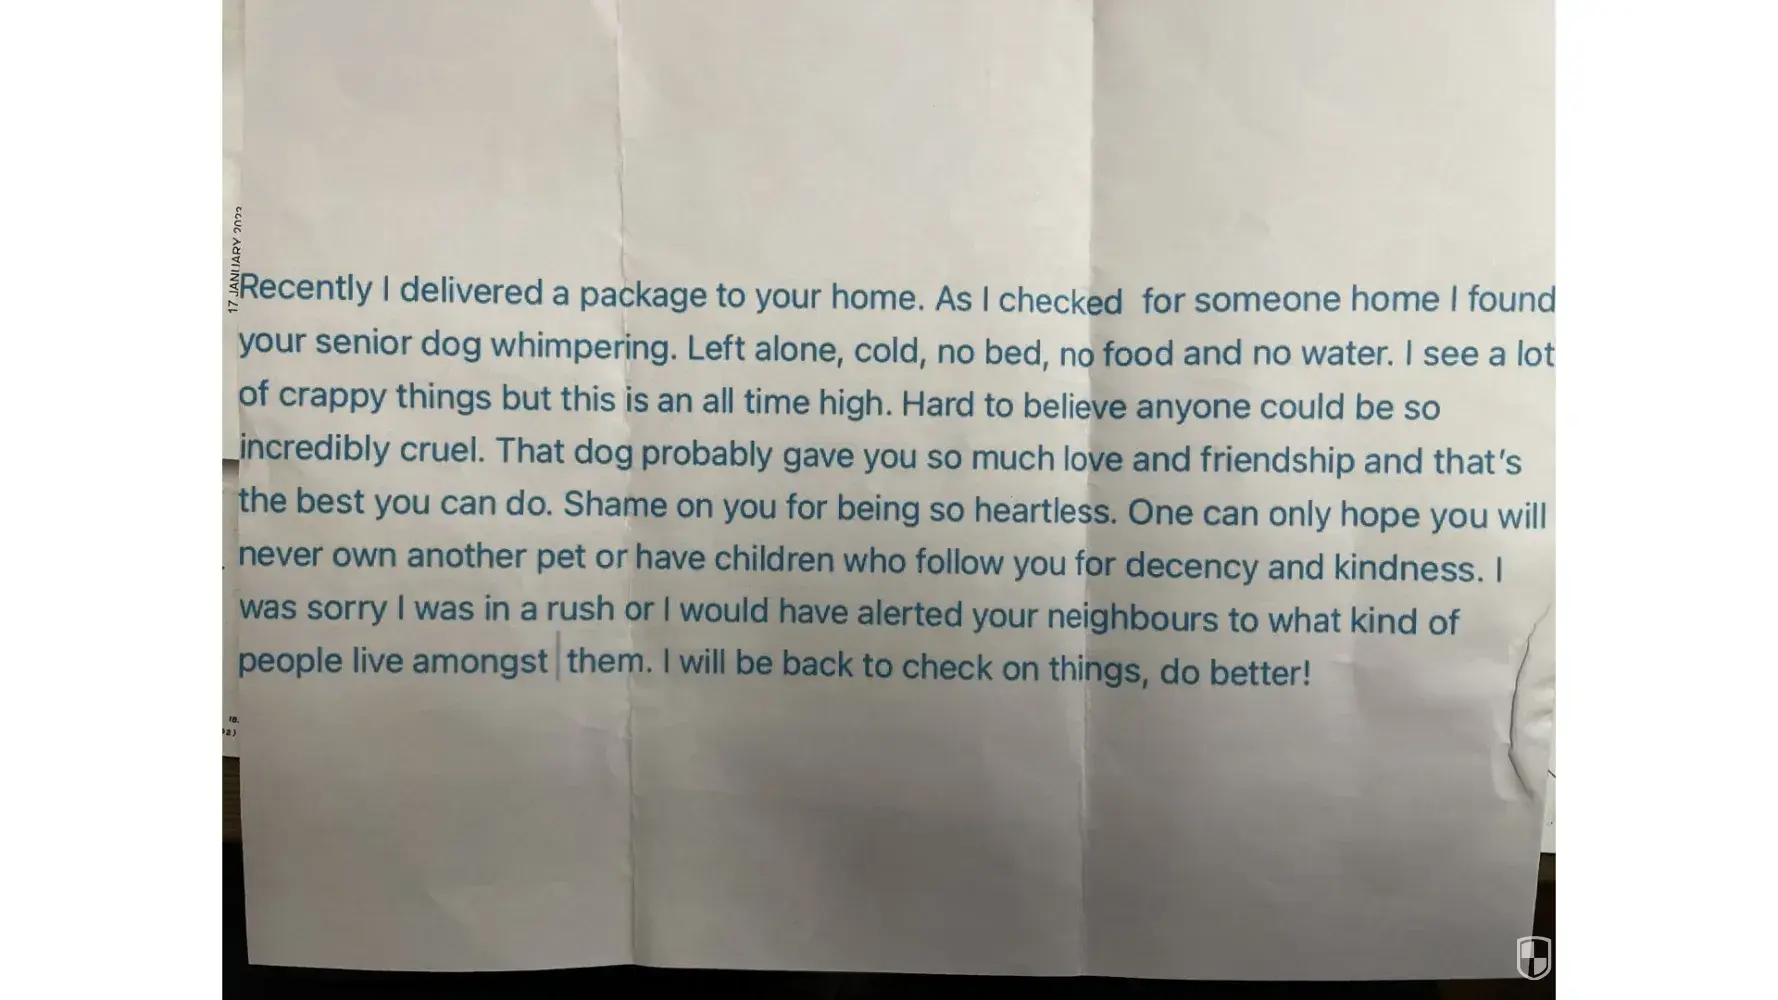 17 JANUARY 2022
Recently I delivered a package to your home. As I checked  for someone home I found
your senior dog whimpering. Left alone, cold, no bed, no food and no water. I see a lot
of crappy things but this is an all time high. Hard to believe anyone could be so
incredibly cruel. That dog probably gave you so much love and friendship and that's
the best you can do. Shame on you for being so heartless. One can only hope you will
never own another pet or have children who follow you for decency and kindness. I
was sorry I was in a rush or I would have alerted your neighbours to what kind of
people live amongst them. I will be back to check on things, do better!
18.